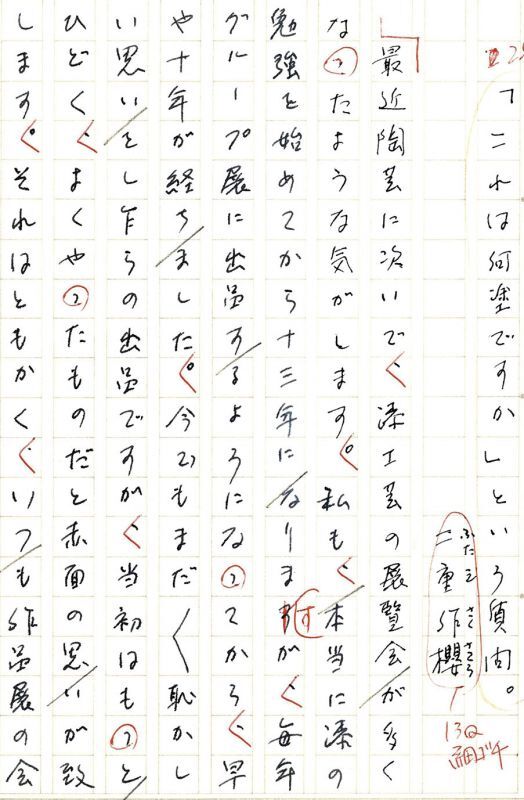 「これは何塗ですか」という質問。
二重作櫻
ふたえさくさくら
13Q
細ゴチ
最近陶芸に次いで、漆工芸の展覧会が多く
なったような気がします。私も、本当に漆の
勉強を始めてから十三年になりますが、毎年
グループ展に出品するようになってから、早
や十年が経ちました。今でもまだ〱恥かし
い思いをし乍らの出品ですが、当初はもっと
ひどく、よくやったものだと赤面の思いが致
します。それはともかく、いつも作品展の会